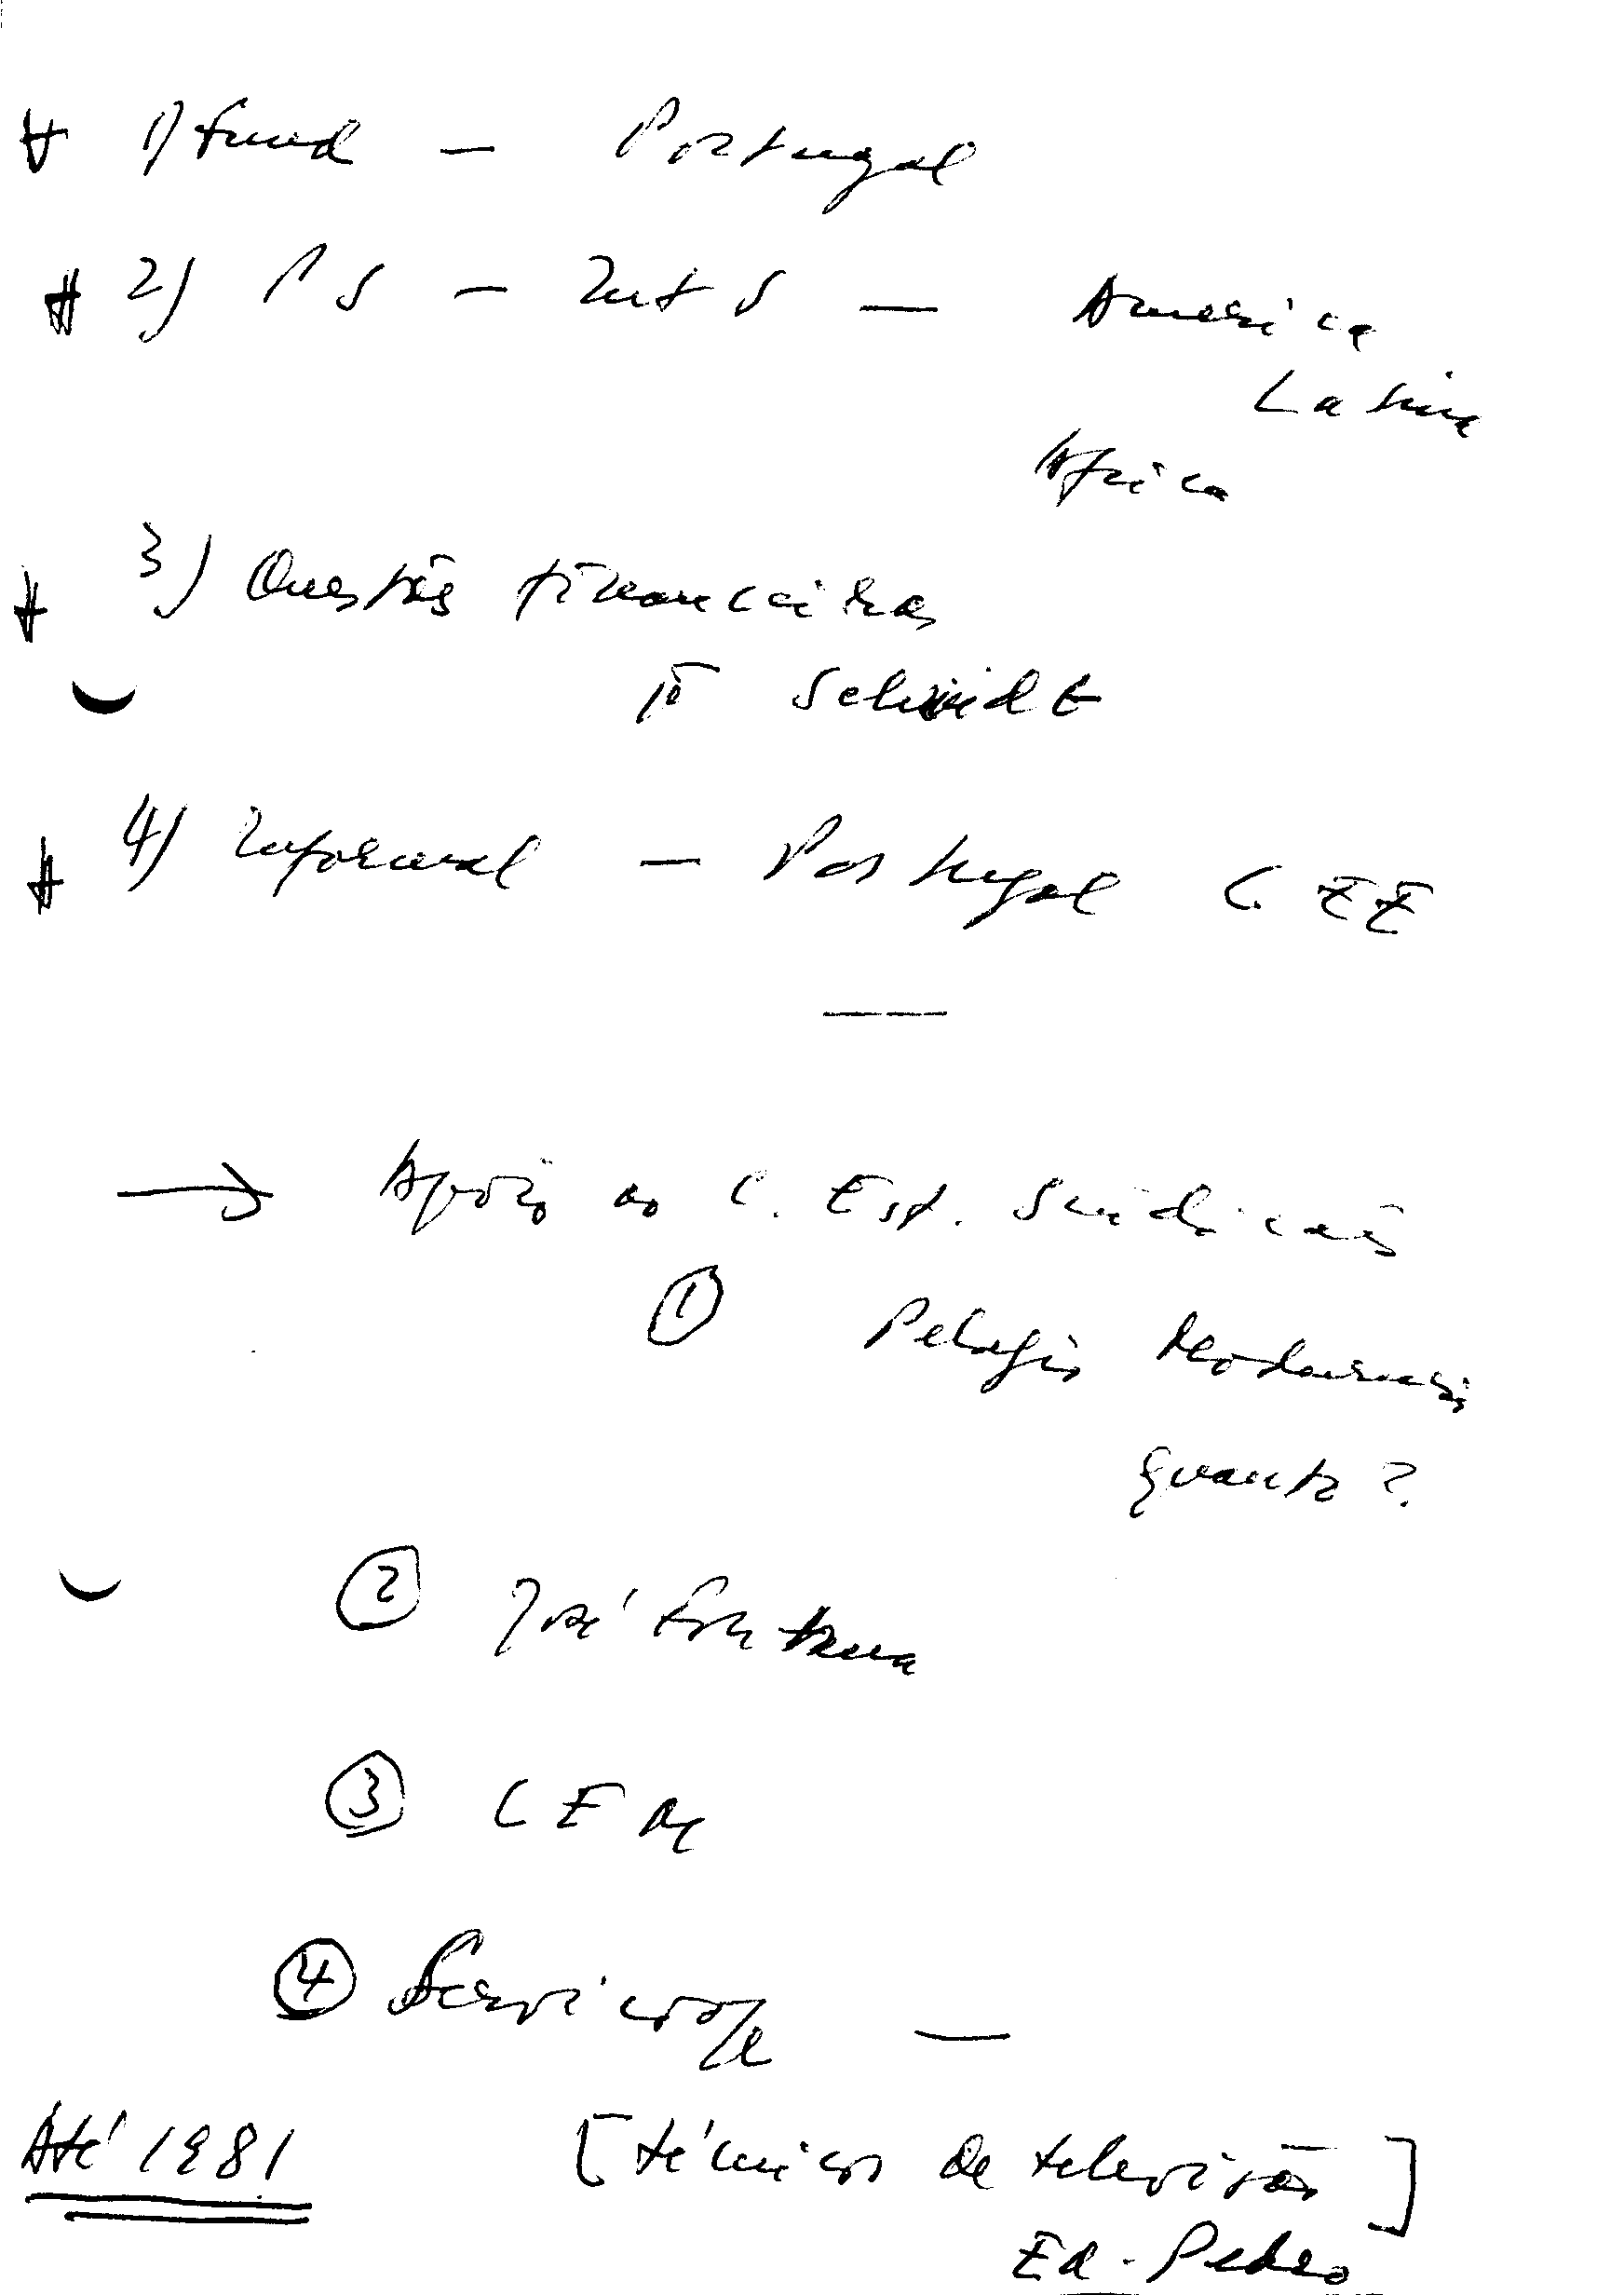 1) Fund — Portugal
2) PS — Int S — America
Latina
Africa
3) Questões financeiras
Schmidt
4) Informal — Portugal C.E.E
→ Apoio ao C. Est. Sindicais
① Pelagio Madureira
quanto?
② José Fontana
③ CEM
④ Servicoop —
Até 1981 [técnicos de televisão]
Ed. Pedro